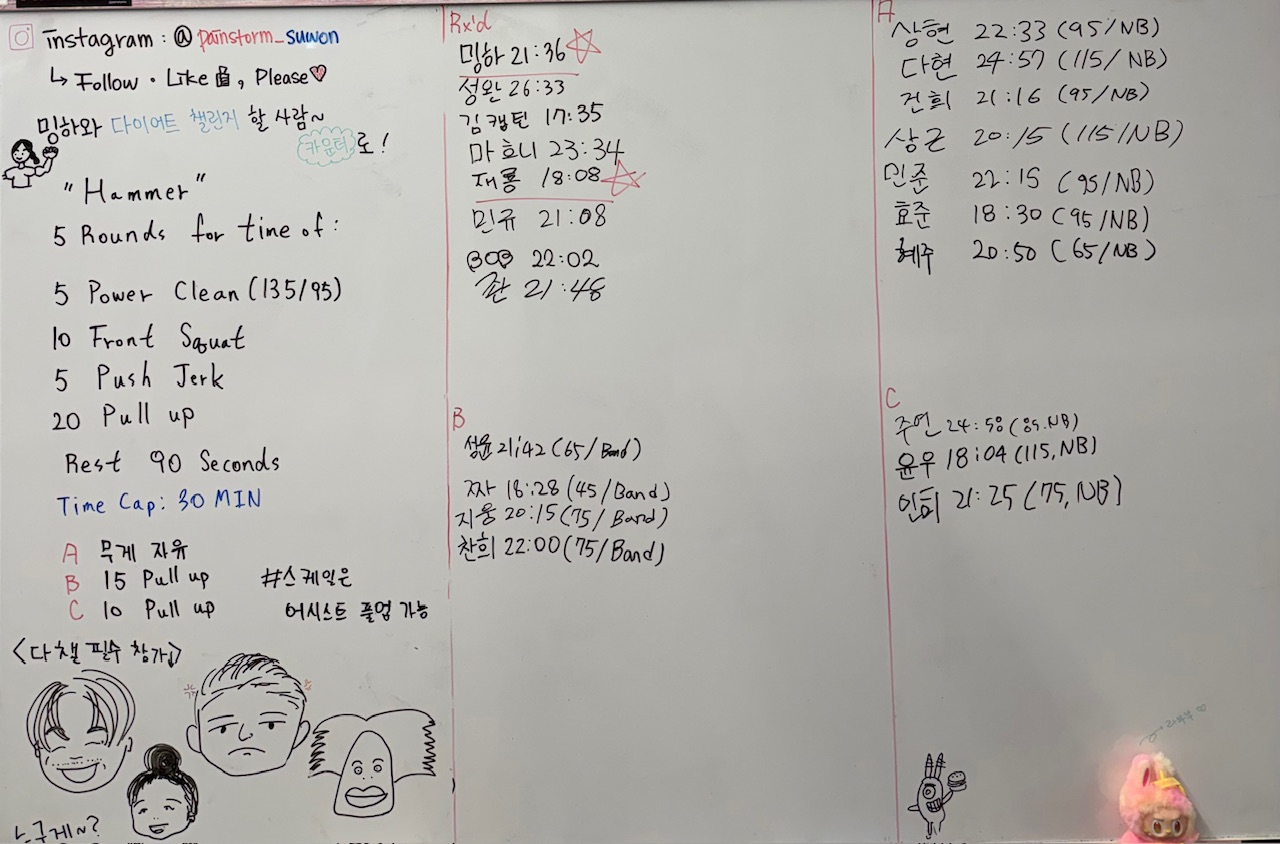 instagram : @ painstorm_suwon
↳ Follow · Like, Please
밍하와 다이어트 챌린지 할 사람~
카운터로!
"Hammer"
5 Rounds for time of :
5 Power Clean (135/95)
10 Front Squat
5 Push Jerk
20 Pull up
Rest 90 Seconds
Time Cap: 30 MIN
A 무게 자유
B 15 Pull up #스케일은
C 10 Pull up 어시스트 풀업 가능
<다챌 필수 참가>
누구게~?
Rx'd
밍하 21:36
성완 26:33
김캡틴 17:35
마호니 23:34
재룡 18:08
민규 21:08
BOB 22:02
쫜 21:48
B
성윤 21:42 (65/Band)
짜 18:28 (45/Band)
지웅 20:15 (75/Band)
찬희 22:00 (75/Band)
A
상현 22:33 (95/NB)
다현 24:57 (115/NB)
건희 21:16 (95/NB)
상근 20:15 (115/NB)
민준 22:15 (95/NB)
효준 18:30 (95/NB)
혜주 20:50 (65/NB)
C
주연 24:58 (85.NB)
윤우 18:04 (115,NB)
인희 21:25 (75,NB)